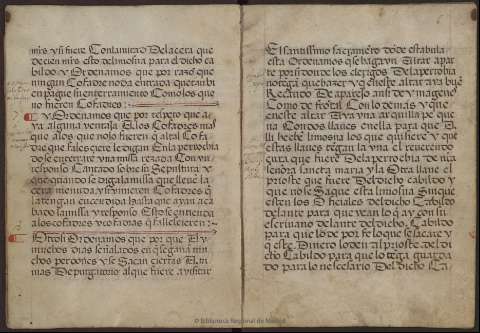 mrs y si fuere Con la mitad De la cera que
de cien mrs esto de limosna para el dicho ca
bildo y Ordenamos que por razō que
ningun Cofrade no da entrada que tan bi
en pague su enterramiento Como los que
no fueren Cofrades
y Ordenamos que por respeto que a
ya alguna ventaja A los Cofrades mas
que a los que no lo fueren q̄ al tal Cofra
de que falesciere le digan En la perrochia
do se enterrare vna missa rezada Con vn
responso Cantado sobre su sepultura y
que quando se diga la missa que lleve la
cera menuda y si tuvieren Cofrades q̄
la tengan encendida hasta que ayan aca
bado la missa y responso Esto se entienda
a los cofrades y cofradas q̄ fallescieren
Otrosi Ordenamos que por que Ay
muchos dias señalados en que gana mu
chos perdones y se Sacan ciertas Ani
mas De purgatorio al que fuere a visitar
El santissimo sacramēto dōde esta bula
esta Ordenamos que haga un Altar apar
te por si todos los clerigos De la perrochia
no tēgā que hazer y q̄ en este altar aya buē
Recaudo De aparejo ansi de ymagenes
Como de frontal Con lo demas y que
en este altar Aya vna arquilla pequeña
Con dos llaves en ella para que A
lli heche limosna los que quisiere y que
estas llaves tēgan la vna el reverendo
cura que fuere De la perrochia de nra
señora sancta maria y la Otra llave el
prioste que fuere Del dicho cabildo y
que no se Saque esta limosna Sin que
esten los Oficiales del dicho Cabildo
delante para que vean lo q̄ ay con su
escrivano delante del dicho Cabildo
para que lo dē por fe lo que se sacare y
q̄ este Dinero lo den al prioste del di
cho Cabildo para que lo tēga guarda
do para lo necessario Del dicho Ca
© Biblioteca Regional de Madrid